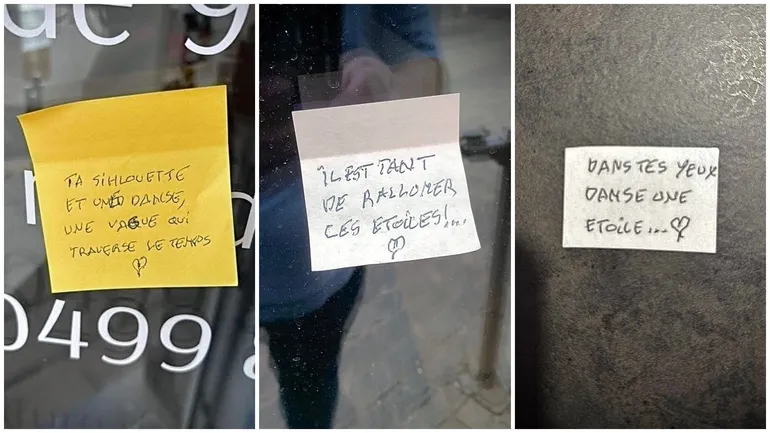 de 9
TA SIHLOUETTE
ET UNE DANSE,
UNE VAGUE QUI
TRAVERSE LE TEMPS
0499
ÎL EST TANT
DE RALLUMER
LES ETOILES!...
DANS TES YEUX
DANSE UNE
ETOILE...